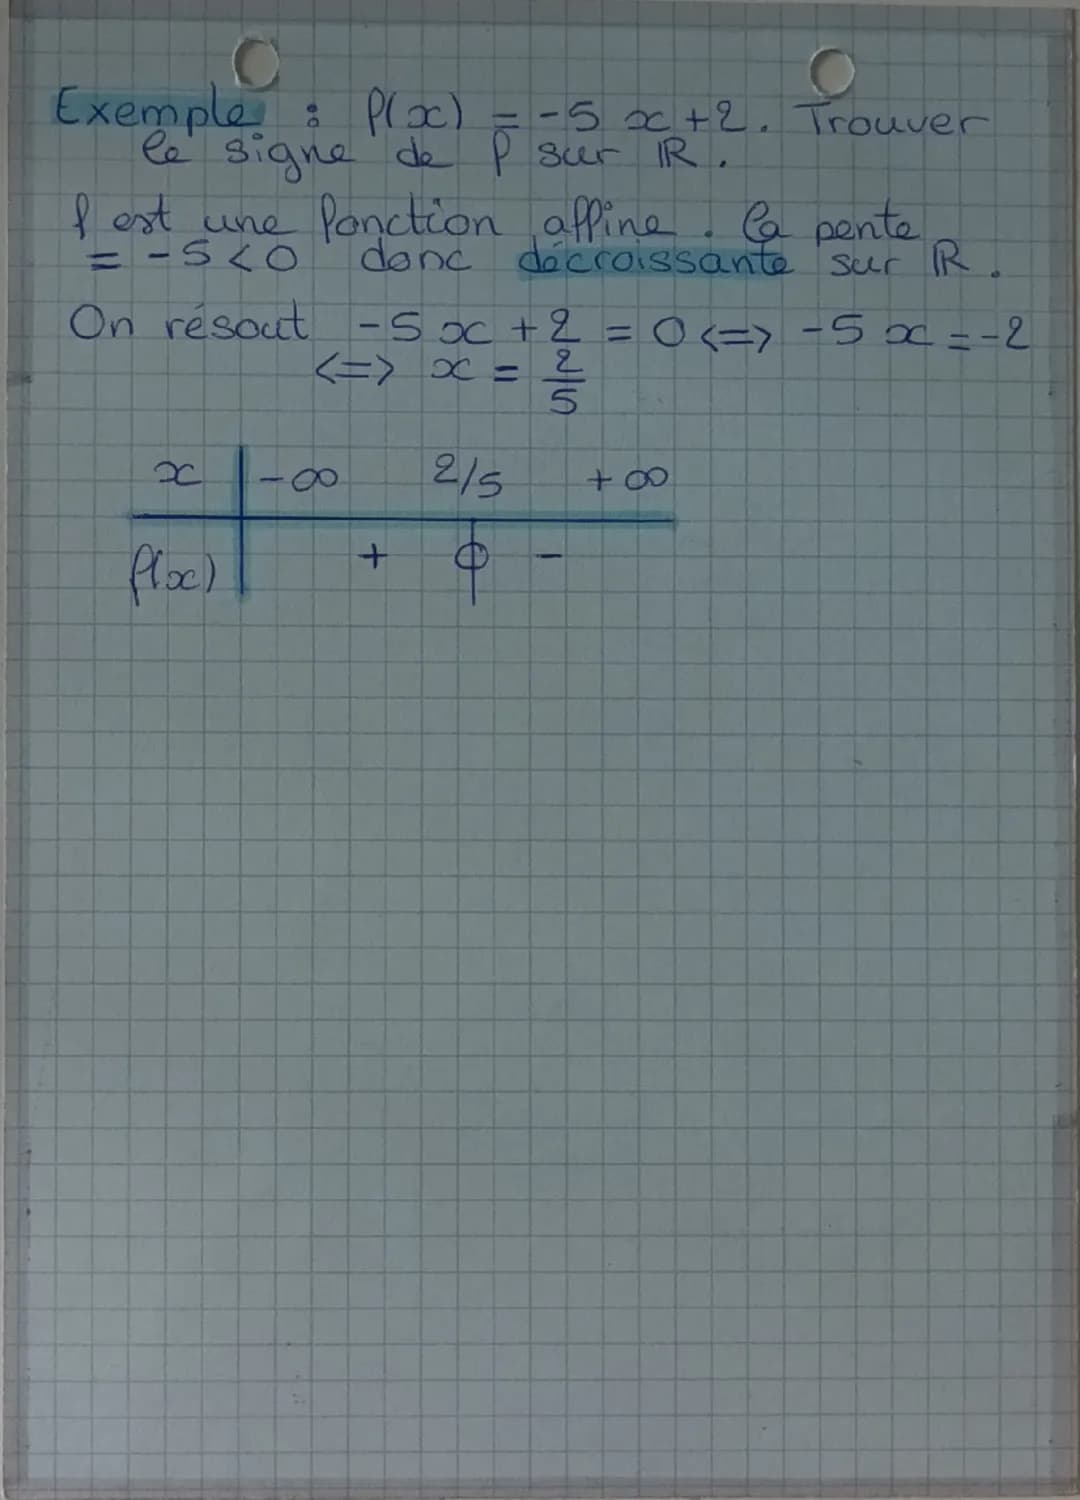 Exemple : f(x) = -5 x + 2. Trouver
le signe de f sur ℝ.
f est une fonction affine. la pente
= -5 < 0 donc décroissante sur ℝ.
On résout -5 x + 2 = 0 <=> -5 x = -2
<=> x = 2/5
x | -∞ 2/5 +∞
f(x) | + 0 -